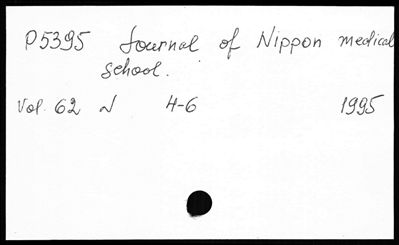 P5395 Journal of Nippon medical
school.
Vol. 62 N 4-6 1995